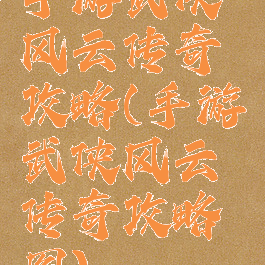 手游武侠
风云传奇
攻略(手游
武侠风云
传奇攻略
图)